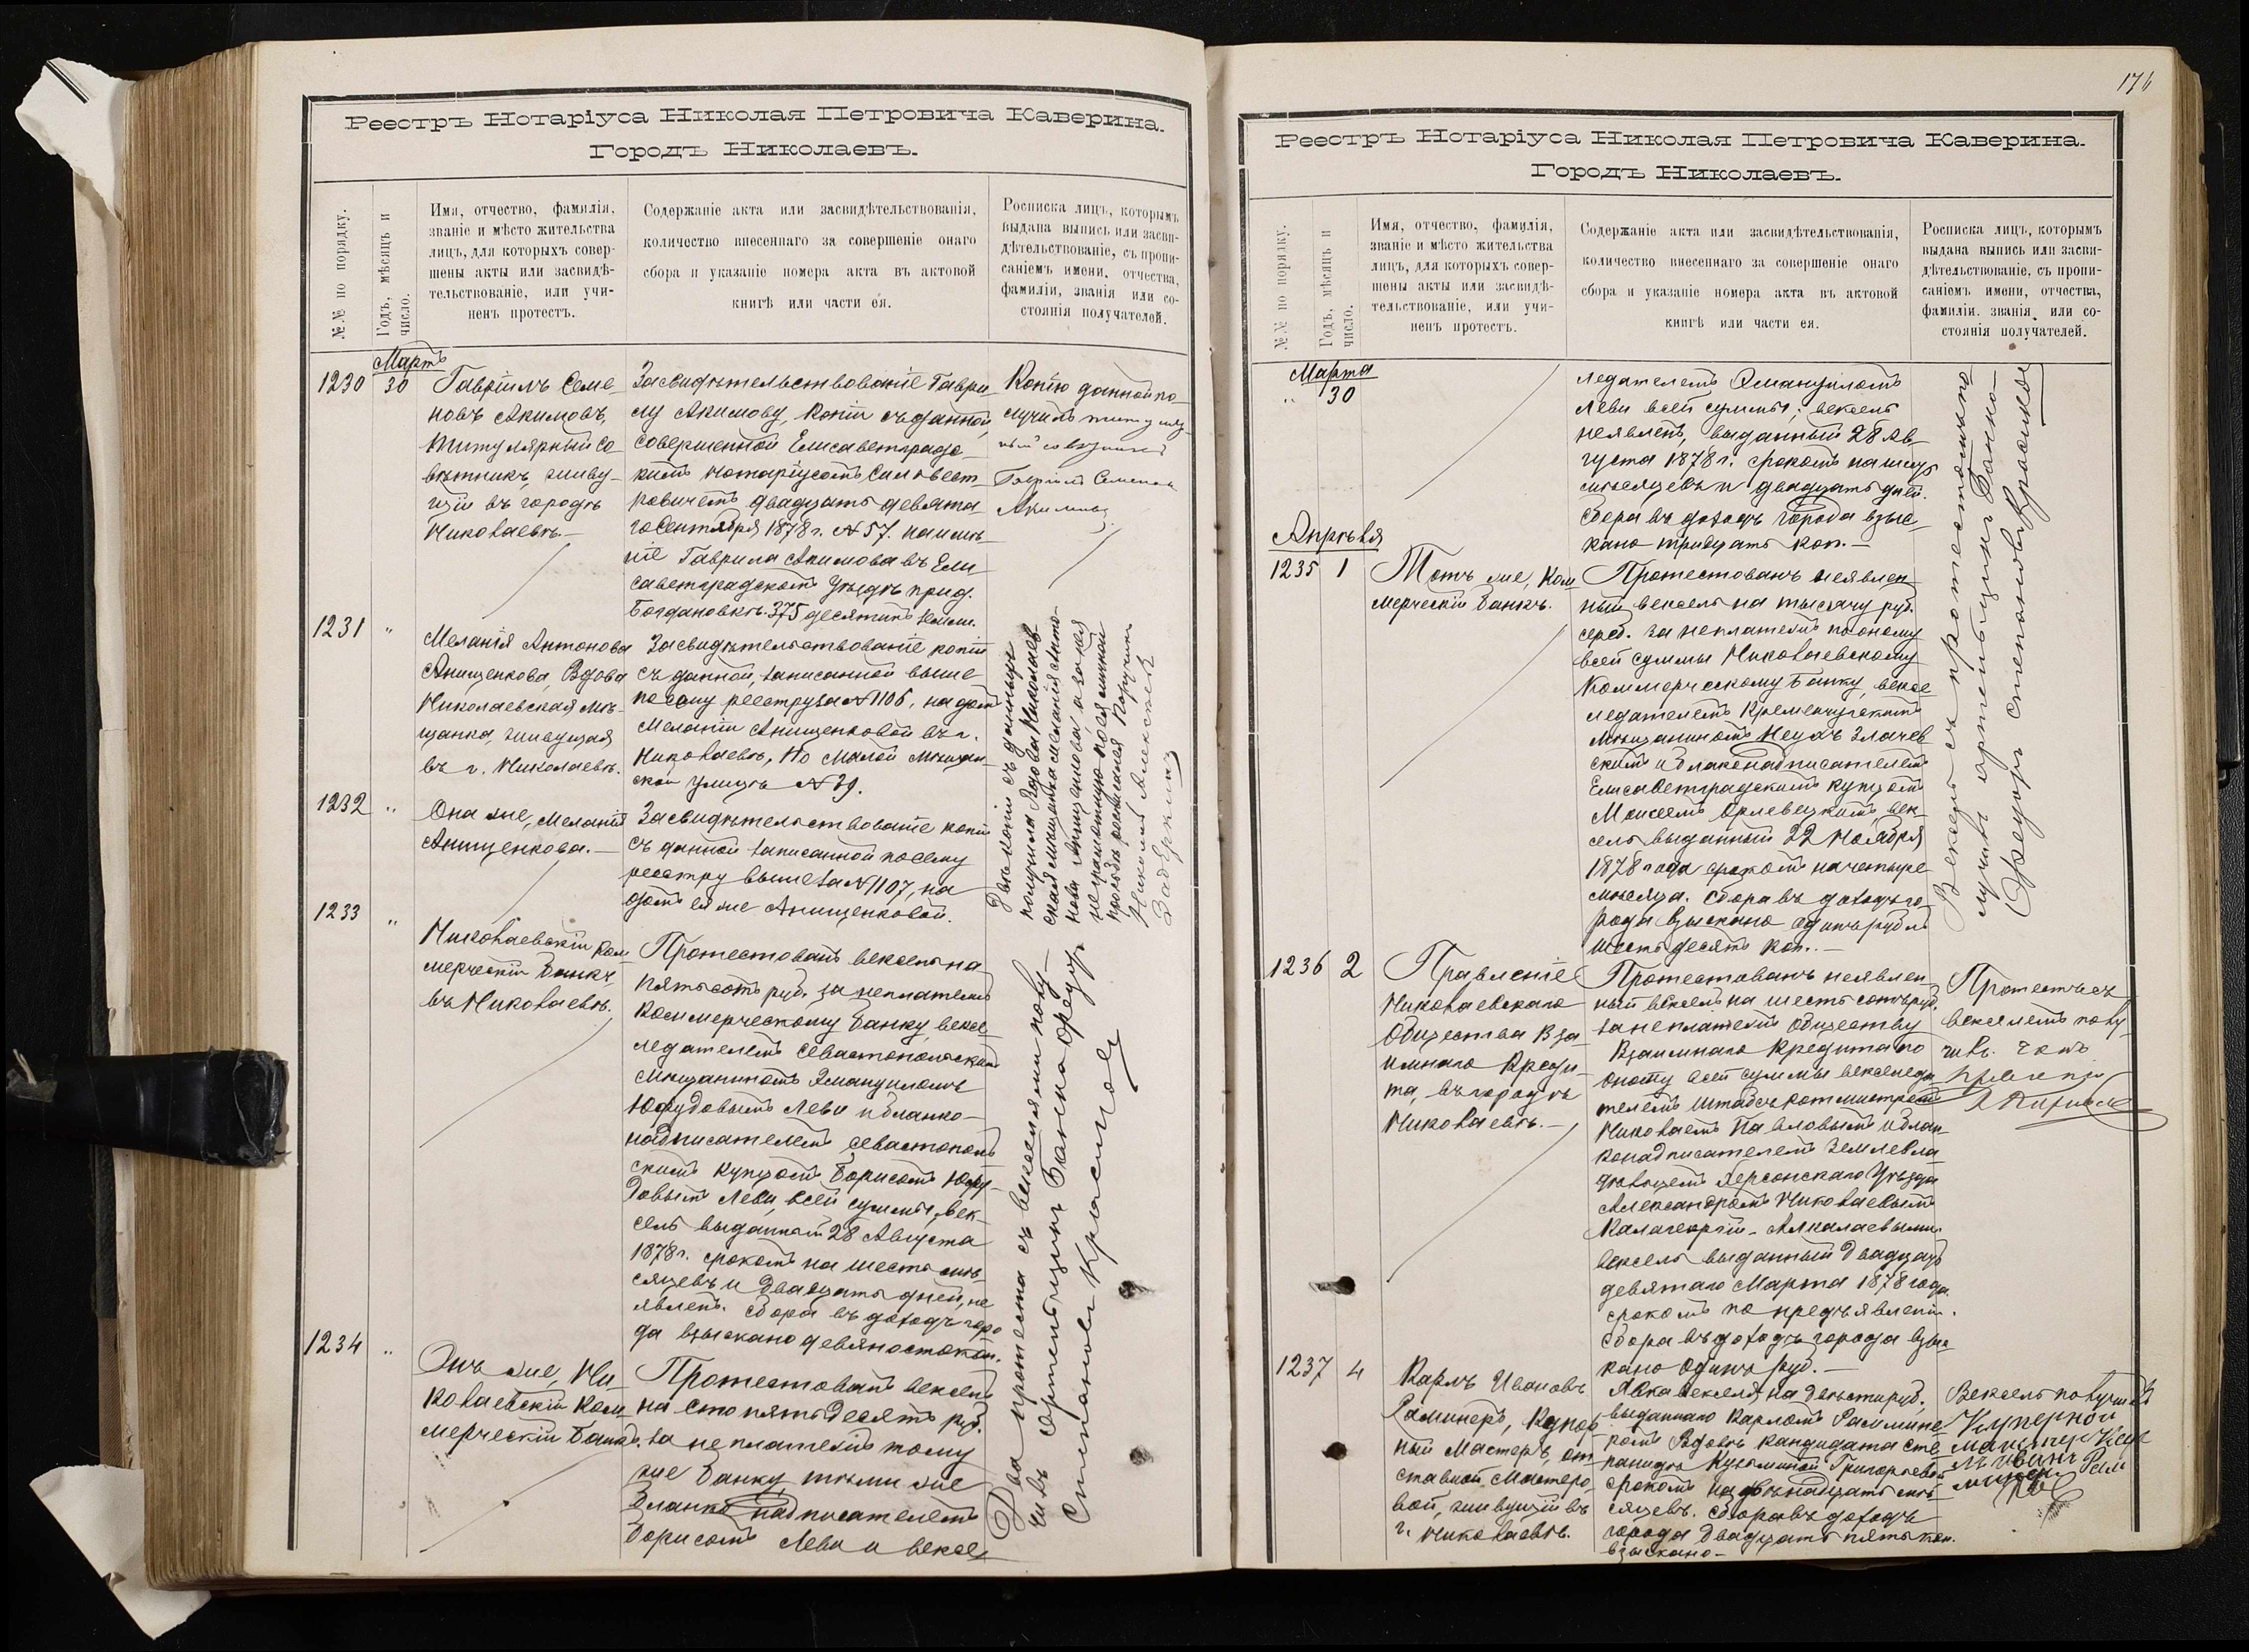 Реестръ Нотаріуса Николая Петровича Каверина.
Городъ Николаевъ.
№№ по порядку.
Годъ, мѣсяцъ и
число.
Имя, отчество, фамилія,
званіе и мѣсто жительства
лицъ, для которыхъ совер-
шены акты или засвидѣ-
тельствованіе, или учи-
ненъ протестъ.
Содержаніе акта или засвидѣтельствованія,
количество внесеннаго за совершеніе онаго
сбора и указаніе номера акта въ актовой
книгѣ или части ея.
Росписка лицъ, которымъ
выдана выпись или засви-
дѣтельствованіе, съ пропи-
саніемъ имени, отчества,
фамиліи, званія или со-
стоянія получателей.
Мартъ
1230
30
Гавріилъ Семе-
новъ Акимовъ,
Титулярный Со-
вѣтникъ, живу-
щій въ городѣ
Николаевѣ.—
Засвидѣтельствованіе Гаври-
лу Акимову, копіи съ данной,
совершенной Елисаветград-
скимъ нотаріусомъ Сильвест-
ровичемъ двадцать девята-
го Сентября 1878 г. № 57. на имѣ-
ніе Гаврила Акимова въ Ели-
саветградскомъ Уѣздѣ при д.
Богдановкѣ. 375 десятинъ земли.
Копію данной по-
лучилъ титуляр-
ный совѣтникъ
Гавріилъ Семеновъ
Акимовъ
1231
"
Меланія Антонова
Анищенкова, Вдова
Николаевская мѣ-
щанка, живущая
въ г. Николаевѣ.
Засвидѣтельствованіе копіи
съ данной, записанной выше
по сему реестру за № 1106, на домъ
Меланіи Анищенковой въ г.
Николаевѣ, по Малой Мѣщан-
ской улицѣ № 39.
1232
"
Она же, Меланія
Анищенкова.—
Засвидѣтельствованіе копіи
съ данной записанной по сему
реестру выше за № 1107, на
домъ ея же Анищенковой.
Двѣ копіи съ данныхъ
получила Вдова Николаев-
ская мѣщанка Меланія Анто-
нова Анищенкова, а за нея
неграмотную по ея личной
просьбѣ росписался Поручикъ
Николай Алексѣевъ
1233
"
Николаевскій Ком-
мерческій Банкъ,
въ Николаевѣ.
Протестованъ вексель на
пятьсотъ руб. за неплатежъ
Коммерческому Банку, вексе-
ледателемъ Севастопольскимъ
мѣщаниномъ Эмануиломъ
Юфудовымъ Леви и бланко-
надписателемъ Севастополь-
скимъ купцомъ Борисомъ Юфу-
довымъ Леви, всей суммы; век-
сель выданный 28 Августа
1878 г. срокомъ на шесть мѣ-
сяцевъ и двадцать дней, не
явленъ. Сбора въ доходъ горо-
да взыскано девяносто коп.
1234
"
Онъ же, Ни-
колаевскій Ком-
мерческій Банкъ.
Протестованъ вексель
на сто пятьдесятъ руб.
за неплатежъ тому
же Банку, тѣми же
Бланконадписателемъ
Борисомъ Леви и вексе-
Два протеста съ векселями полу-
чилъ артельщикъ Банка Федоръ
Степановъ Красигоръ
176
Реестръ Нотаріуса Николая Петровича Каверина.
Городъ Николаевъ.
№№ по порядку.
Годъ, мѣсяцъ и
число.
Имя, отчество, фамилія,
званіе и мѣсто жительства
лицъ, для которыхъ совер-
шены акты или засвидѣ-
тельствованіе, или учи-
ненъ протестъ.
Содержаніе акта или засвидѣтельствованія,
количество внесеннаго за совершеніе онаго
сбора и указаніе номера акта въ актовой
книгѣ или части ея.
Росписка лицъ, которымъ
выдана выпись или засви-
дѣтельствованіе, съ пропи-
саніемъ имени, отчества,
фамиліи, званія или со-
стоянія получателей.
Марта
" 30
ледателемъ Эмануиломъ
Леви всей суммы; вексель
неявленъ, выданный 28 Ав-
густа 1878 г. срокомъ на шесть
мѣсяцевъ и двадцать дней.
Сбора въ доходъ города взыс-
кано тридцать коп.—
Апрѣля
1235
1
Тотъ же, Ком-
мерческій Банкъ.
Протестованъ неявлен-
ный вексель на тысячу руб.
сереб. за неплатежъ по оному
всей суммы Николаевскому
Коммерческому Банку, вексе-
ледателемъ Кременчугскимъ
мѣщаниномъ
и бланконадписателемъ
Елисаветградскимъ купцомъ
Моисеемъ Орловецкимъ, век-
сель выданный 22 Ноября
1878 года срокомъ на четыре
мѣсяца. Сбора въ доходъ го-
рода взыскано одинъ рубль
шестьдесятъ коп.—
Вексель съ протестомъ по-
лучилъ артельщикъ Банка
Федоръ Степановъ Красигоръ
1236
2
Правленіе
Николаевскаго
Общества Вза-
имнаго Креди-
та, въ городѣ
Николаевѣ.—
Протестованъ неявлен-
ный вексель на шестьсотъ руб.
за неплатежъ Обществу
Взаимнаго Кредита по
оному всей суммы векселеда-
телемъ Штабсъ ротмистромъ
Николаемъ Павловымъ и блан-
конадписателемъ Землевла-
дѣльцемъ Херсонскаго Уѣзда
Александромъ Николаевымъ
вексель выданный двадцать
девятаго Марта 1878 года
срокомъ по предъявленіи.
Сбора въ доходъ города взыс-
кано Одинъ руб.—
Протестъ съ
векселемъ полу-
чилъ
1237
4
Карлъ Ивановъ
Раминеръ, Купор-
ный Мастеръ, от-
ставной Мастеро-
вой, живущій въ
г. Николаевѣ.
Явка векселя, на двѣсти руб.,
выданнаго Карломъ Раммине-
ромъ Вдовѣ кандидата Сте-
паниды Кузьминой Григорьевой
срокомъ на двѣнадцать мѣ-
сяцевъ. Сбора въ доходъ
города двадцать пять коп.
взыскано—
Вексель получилъ
Купорной
мастеръ Карл